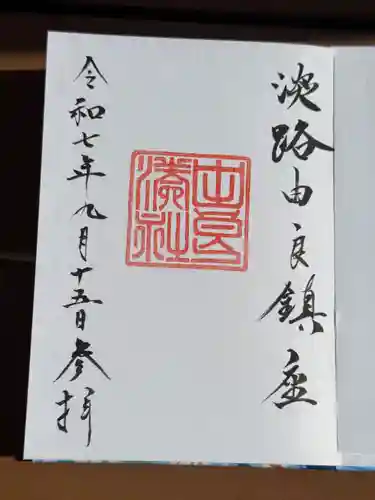 淡路由良鎮座
由良湊社
令和七年九月十五日参拝